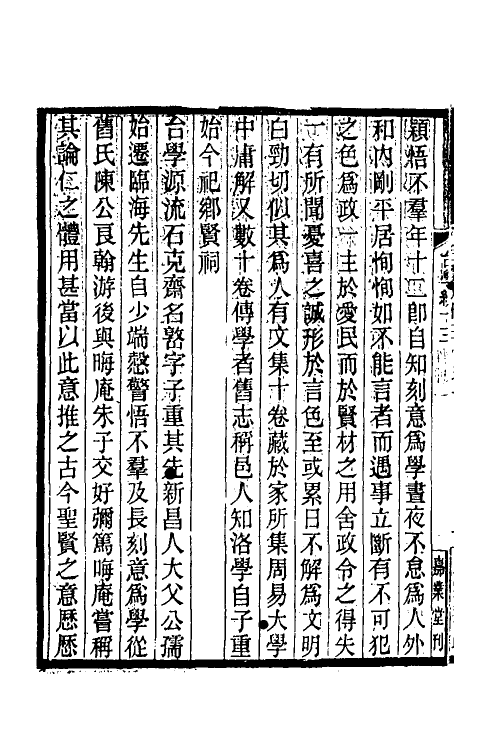 穎悟不羣年十三卽自知刻意爲學晝夜不怠爲人外
和內剛平居恂恂如不能言者而遇事立斷有不可犯
之色爲政一主於愛民而於賢材之用舍政令之得失
一有所聞憂喜之誠形於言色至或累日不解爲文明
白勁切似其爲人有文集十卷藏於家所集周易大學
中庸解又數十卷傳學者舊志稱邑人知洛學自子重
始今祀鄉賢祠
台學源流石克齋名𡼖字子重其先新昌人大父公孺
始遷臨海先生自少端慤警悟不羣及長刻意爲學從
舊氏陳公良翰游後與晦庵朱子交好彌篤晦庵嘗稱
其論仁之體用甚當以此意推之古今聖賢之意歷歷
嘉業堂刊